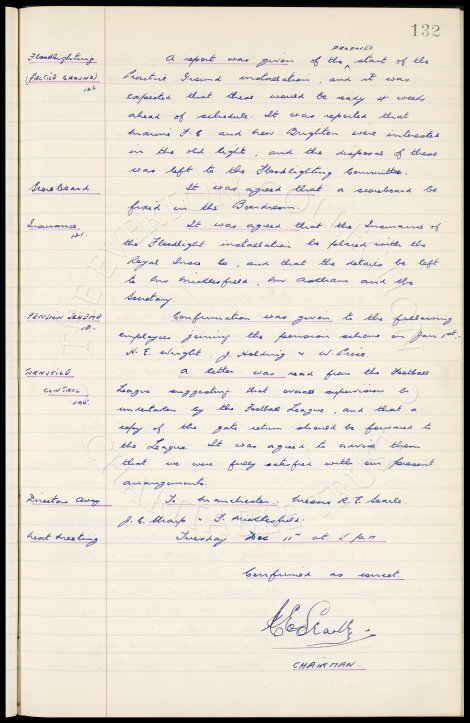 132
Floodlighting A report was given of the PROPOSED start of the
(PRACTICE GROUND) Practice Ground installation, and it was
126 expected that these would be ready 4 weeks
ahead of schedule. It was reported that
Marine F.C and New Brighton were interested
in the old light, and the disposal of these
was left to the Floodlighting Committee.
Scoreboard It was agreed that a scoreboard be
fixed in the Boardroom.
Insurance It was agreed that the Insurance of
121. the Floodlight installation be placed with the
Royal Insce Co, and that the details be left
to Mr Micklesfield, Mr and the
Secretary
PENSION SCHEME Confirmation was given to the following
employees joining the pension scheme on Jan 1st.
H. E. Wright, J. Holding & W. Price
TURNSTILE A letter was read from the Football
CONTROL League suggesting that overall supervision be
105. undertaken by the Football League, and that a
copy of the gate return should be forward to
the League It was agreed to advise them
that we were fully satisfied with our present
arrangements.
Directors Away To Manchester: Messrs R. F. Searle
J. C. Sharp & F. Micklesfield.
Next Meeting Tuesday Dec 11th at 5 p.m
Confirmed as correct.
CHAIRMAN.